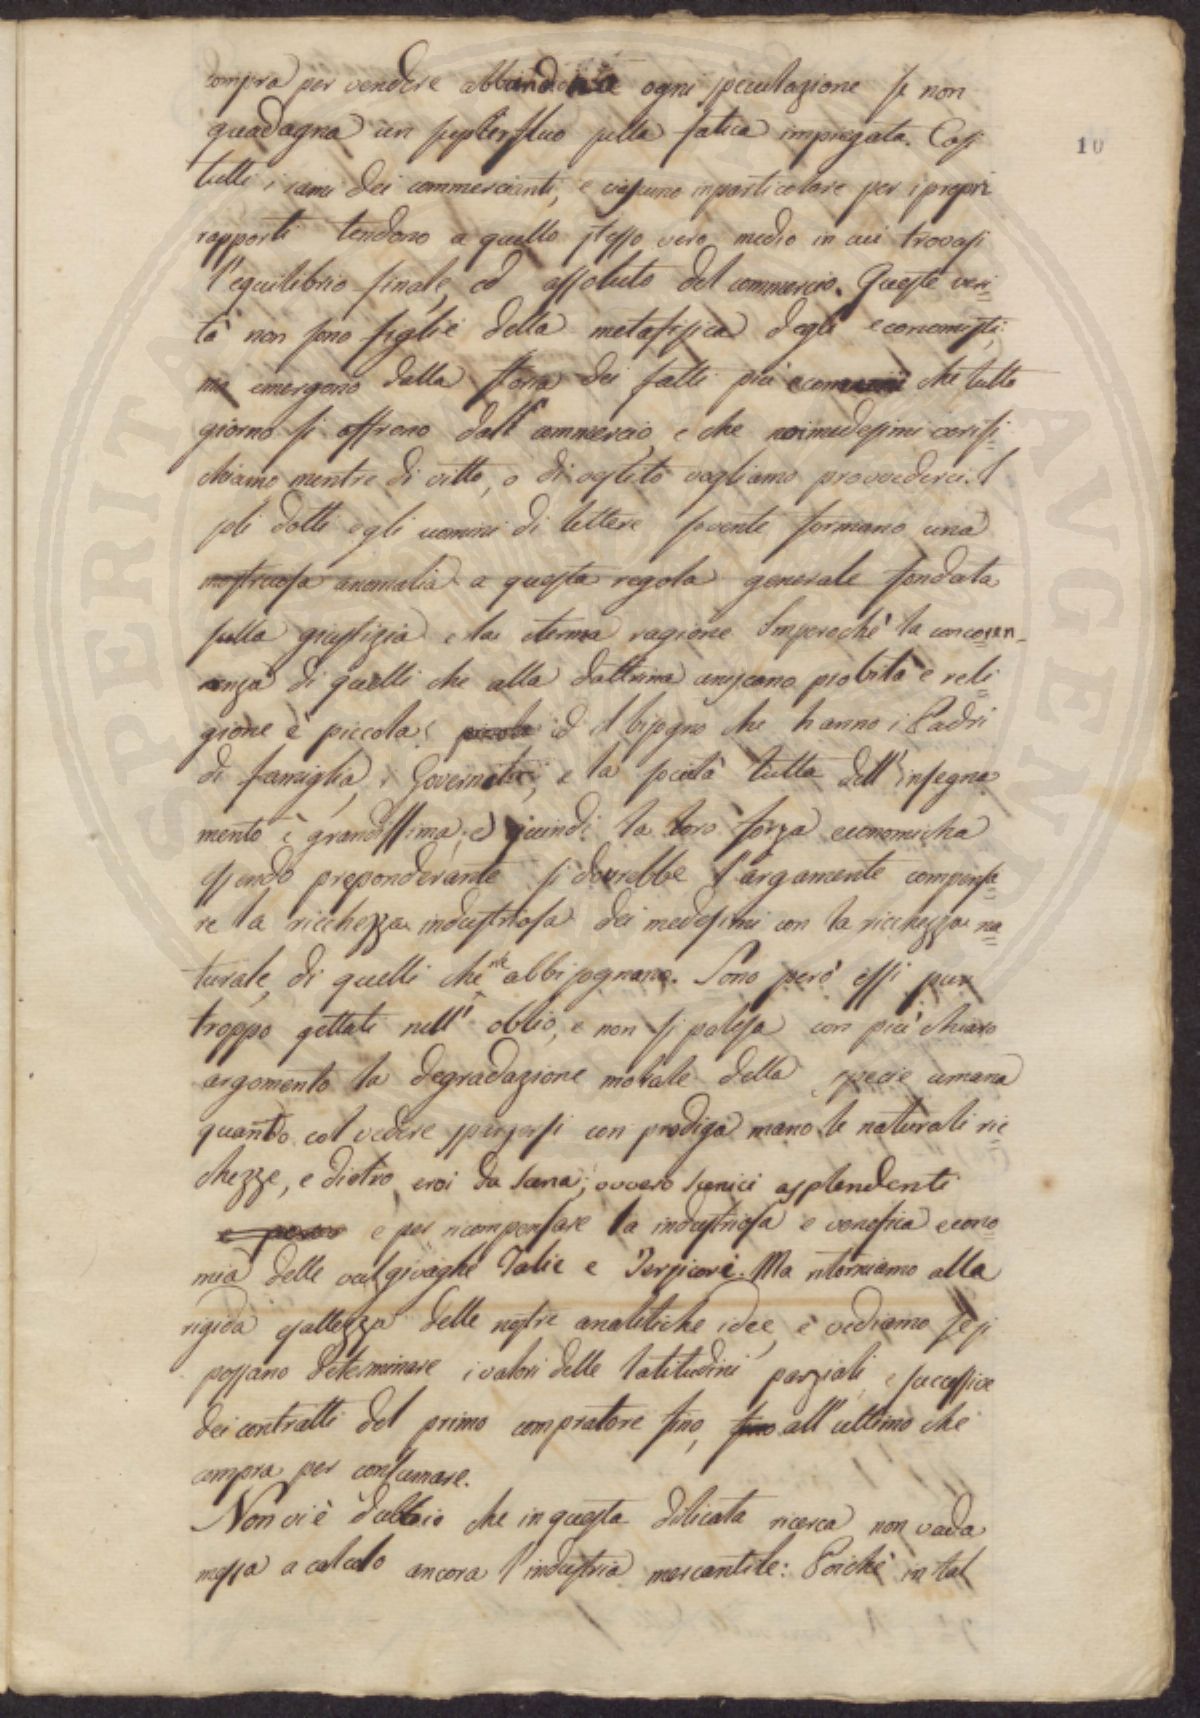 compra per vendere abbandona ogni speculazione se non
guadagna un superfluo sulla fatica impiegata. Così
tutti i rami dei commercianti, e ciascuno in particolare per i proprii
rapporti tendono a quello stesso vero medio in cui trovasi
l'equilibrio finale, ed assoluto del commercio. Queste veri=
tà non sono figlie della metafisica degli economisti,
ma emergono dalla storia dei fatti più comuni che tutto
giorno si offrono dal commercio, e che noi medesimi verifi=
chiamo mentre di vitto, o di vestito vogliamo provvederci. I
soli dotti e gli uomini di lettere sovente formano una
mostruosa anomalia a questa regola generale fondata
sulla giustizia e la eterna ragione Imperochè la concorr=
enza di quelli che alla dottrina uniscano probità e reli=
gione è piccola ed il bisogno che hanno i Padri
di famiglia, i Governi, e la società tutta dell'insegna
mento è grandissima, e quindi la loro forza economicha
essendo preponderante si dovrebbe largamente compensa=
re la ricchezza industriosa dei medesimi con la ricchezza na=
turale, di quelli che ne abbisognano. Sono però essi pur
troppo gettati nell'oblio, e non si palesa con più chiaro
argomento la degradazione morale della specie umana
quanto col vedere spargersi con prodiga mano le naturali ric=
chezze, e dietro eroi da scena, ovvero scenici asplendenti
e per ricompensare la industriosa e venefica econo=
mia delle vaghe Talie e Tersicori. Ma ritorniamo alla
rigida esattezza delle nostre analitiche idee, e vediamo se si
possano determinare i valori delle latitudini parziali, e successive
dei contratti del primo compratore fino, all'ultimo che
compra per consumare.
Non vi è dubbio che in questa dilicata ricerca non vada
messa a calcolo ancora l'industria mercantile: Poichè in tal
10
SPERITA AVGENT